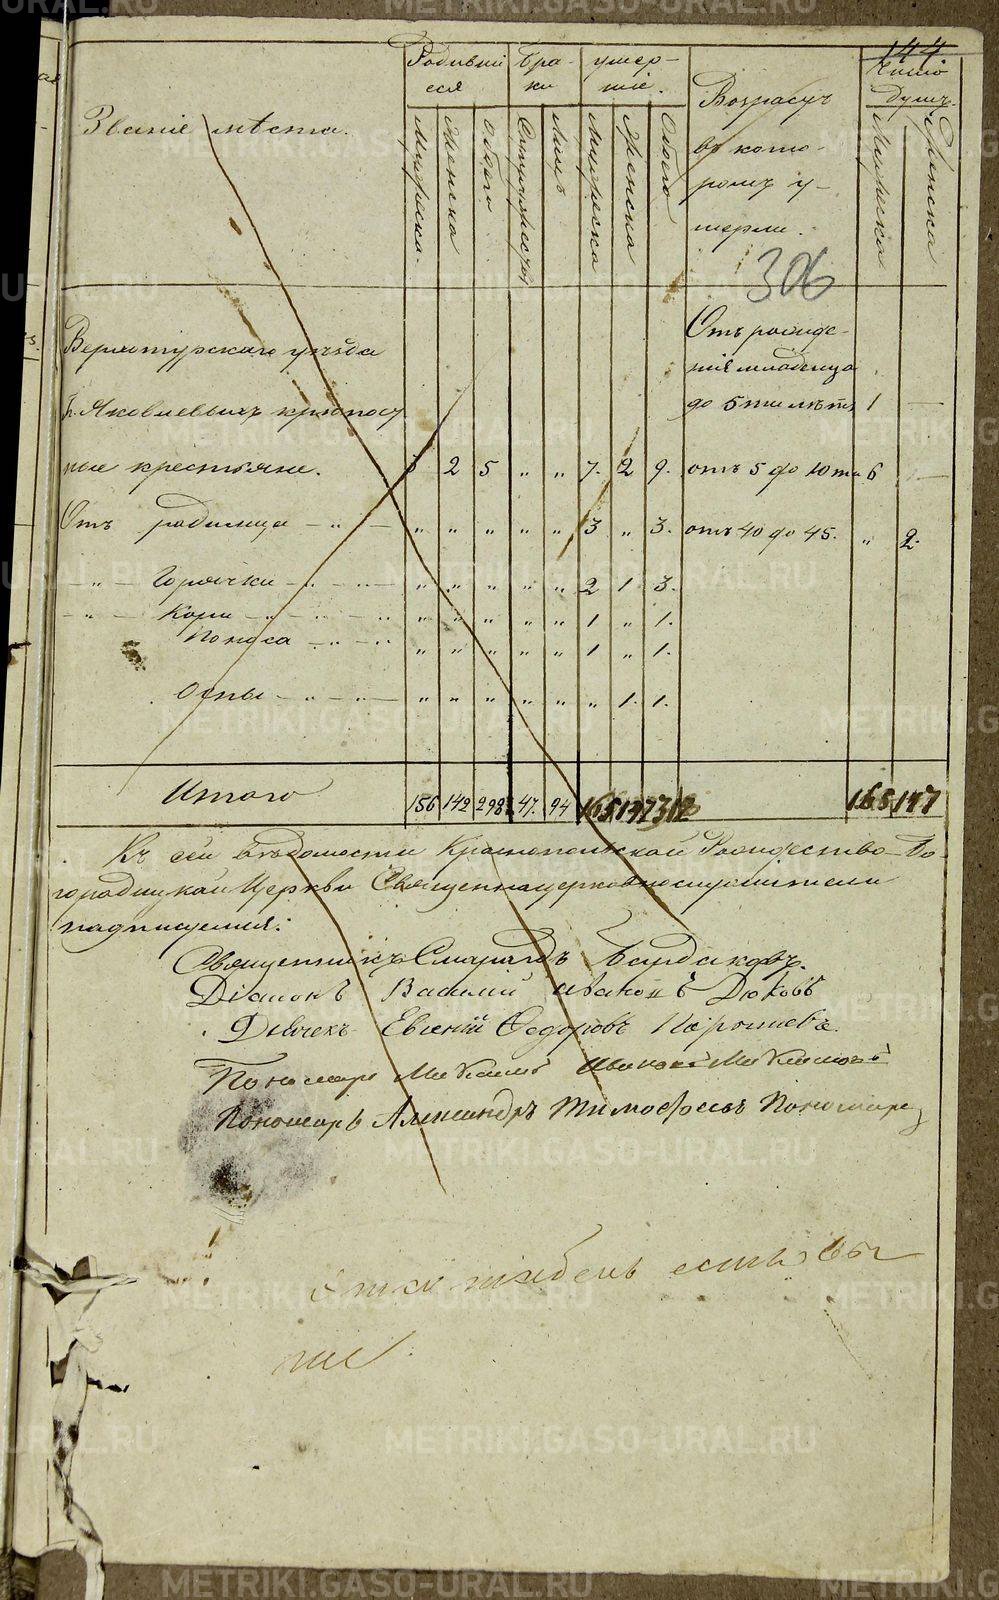 144
306
Званіе мѣста.
Родившіеся
Бра-ки
умер-шіе.
Возрастъ
въ кото-
ромъ у-
мерли.
Число
душъ
Мужеска.
Женска
Обоего
Супружествъ
Лицъ
Мужеска
Женска
Обоего
Мужеска
Женска
Верхотурскаго уѣзда
Г. Яковлевыхъ крѣпост
ные крестьяне. 3 2 5 " " 7. 2 9.
Отъ родимца — " — " " " " " 3 " 3.
— " — Горячки — " — " — " " " " " 2 1. 3.
— " — Кори — " — " — " " " " " " 1 " 1.
Поноса — " — " " " " " " 1 " 1.
Оспы — " — " — " " " " " " 1. 1.
Отъ рожде-
нія младенца
до 5ти лѣтъ 1 —
отъ 5 до 10ти 6 —
отъ 40 до 45. " 2.
Итого 156 142 298 47. 94 165 147 312 165 147
Къ сей вѣдомости Краснопольской Рождество-Бо-
городицкой Церкви Священноцерковнослужители
подписуемся:
Священникъ Смарагдъ Бардаковъ.
Діаконъ Василій Ивановъ Дюковъ
Дьячекъ Евгеній Ѳедоровъ
Пономарь Михаилъ Ивановъ
Пономарь Александръ Тимофеевъ Пономарев
есть